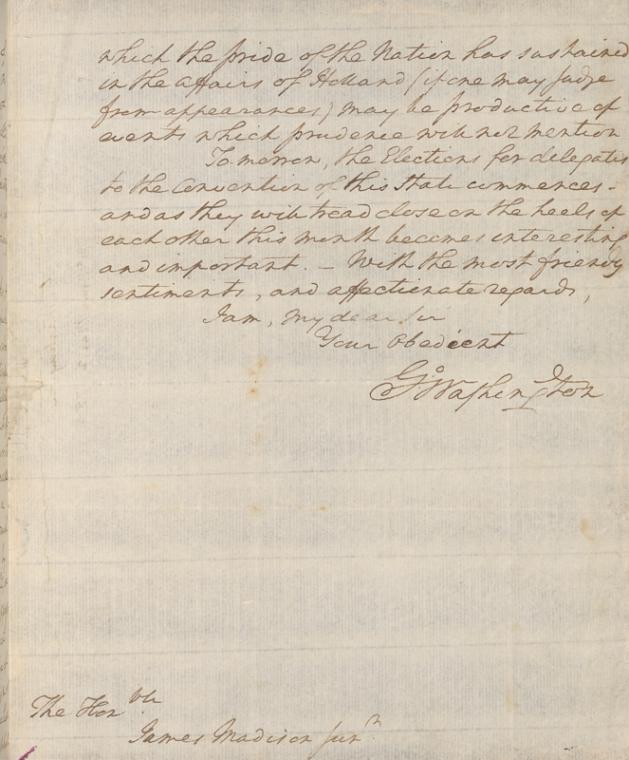 which the pride of the Nation has sustained
in the affairs of Holland (if one may judge
from appearances) may be productive of
events which prudence will not mention
To-morrow, the Elections for delegates
to the Convention of this State commences -
and as they will tread close on the heels of
each other this month becomes interesting
and important. - With the most friendly
sentiments, and affectionate regards,
I am, My dear Sir
Your Obedient
Go Washington
The Honble
James Madison Junr